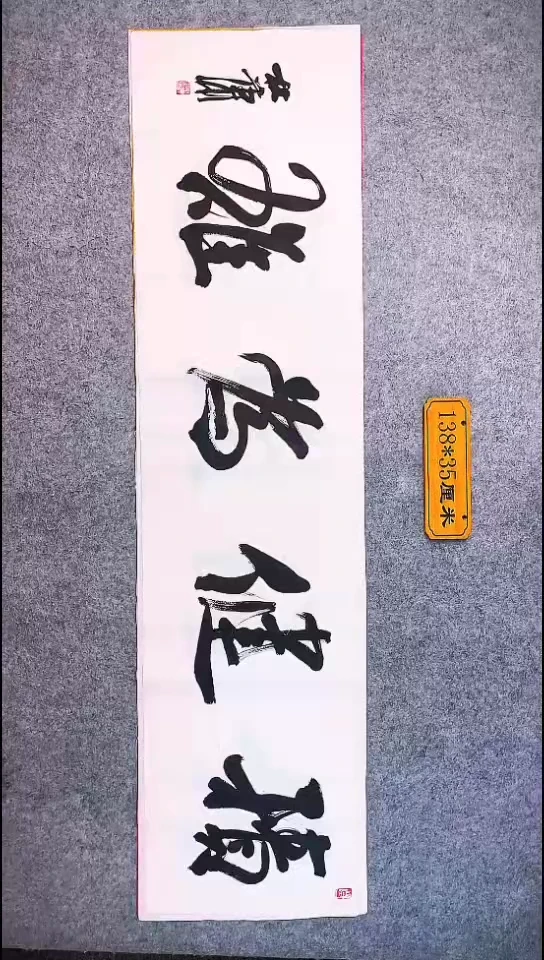 積健為雄
138*35厘米